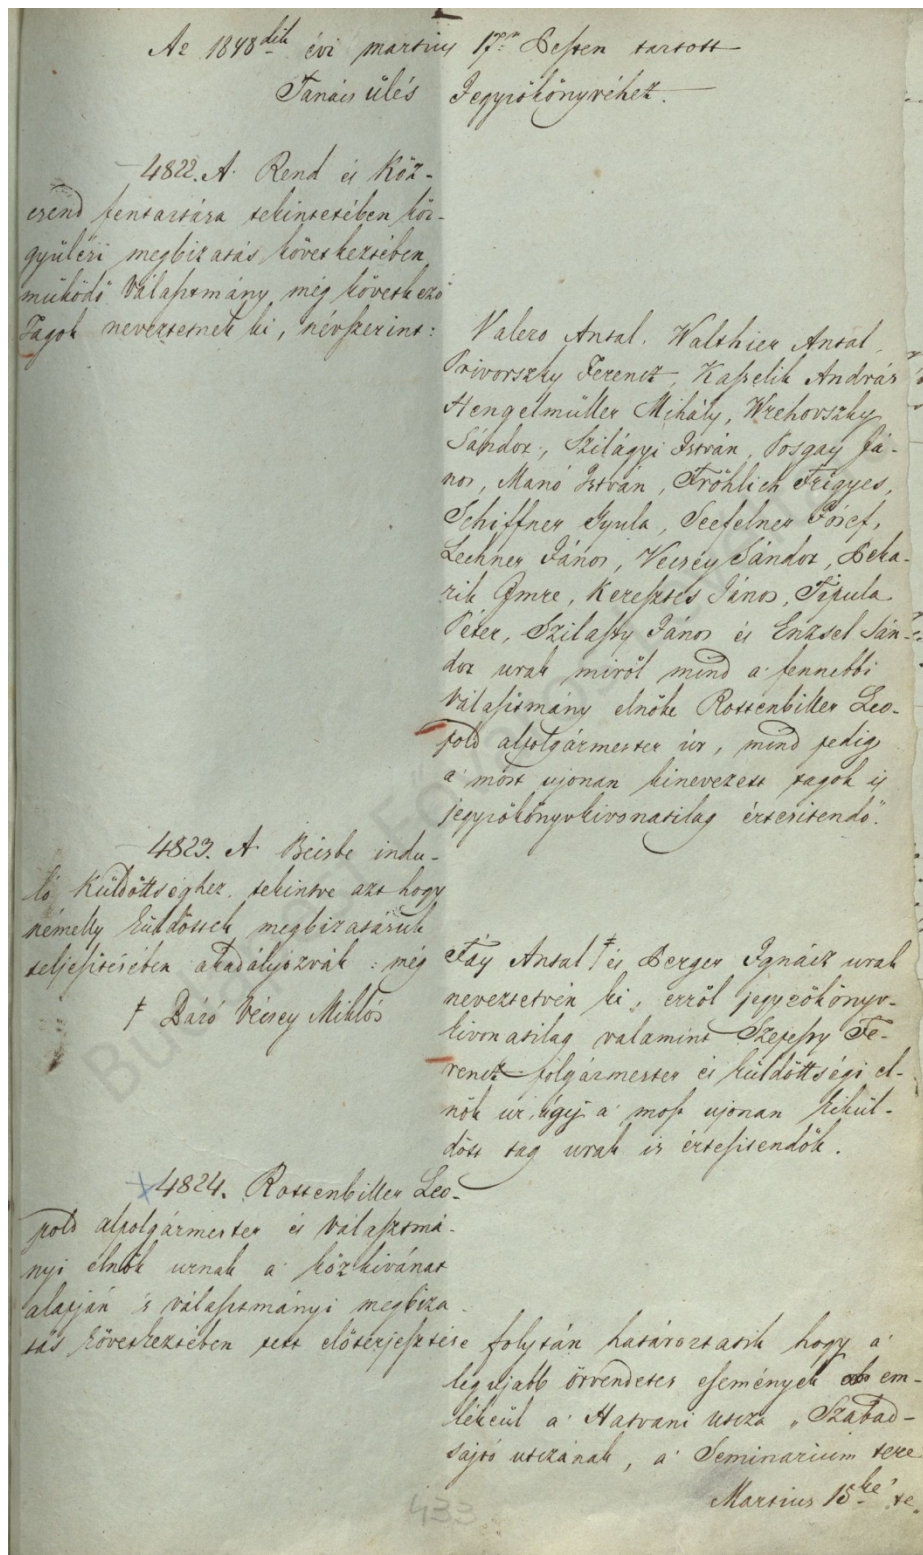 Az 1848dik évi martius 17én Pesten tartott
Tanács ülés Jegyzőkönyvéhez.
4822. A' Rend és Köz-
csend fentartása tekintetében köz-
gyülési megbizatás következtében
müködő Választmány még következő
Tagok neveztetnek ki, névszerint:
Valero Antal, Walthier Antal,
Privorszky Ferencz, Kaszelik András
Hengelmüller Mihály, Wrchovszky
Sándor, Szilágyi István, Posgay Já-
nos, Manó István, Fröhlich Frigyes,
Schiffner Gyula, Seefelner Jósef,
Lechner János, Vecsey Sándor, Peka-
rik Imre, Keresztes János, Tipula
Péter, Szilassy János és Enzsel Sán-
dor urak miről mind a' fennebbi
választmány elnöke Rottenbiller Leo-
pold alpolgármester úr, mind pedig
a' most ujonan kinevezett tagok is
jegyzőkönyvkivonatilag értesitendő.
4823. A' Bécsbe indu-
ló Küldöttséghez tekintve azt hogy
némelly küldöttek megbizatásuk
teljesitésében akadályozvák: még
Fáy Antal ‡ és Berger Ignácz urak
‡ Báró Vécsey Miklós
neveztetvén ki, erről jegyzőkönyv-
kivonatilag valamint Szepessy Fe-
rencz polgármester és küldöttségi el-
nök úr, úgy a' most ujonan kikül-
dött tag urak is értesitendők.
4824. Rottenbiller Leo-
pold alpolgármester és választmá-
nyi elnök urnak a' közkivánat
alapján 's választmányi megbiza-
tás következtében tett előterjesztése folytán határoztatik hogy a'
legujabb örvendetes események em-
lékéül a' Hatvani utcza „Szabad-
sajtó utczának, a' Seminarium tere
Martius 15ke' te.
433
Budapest Főváros